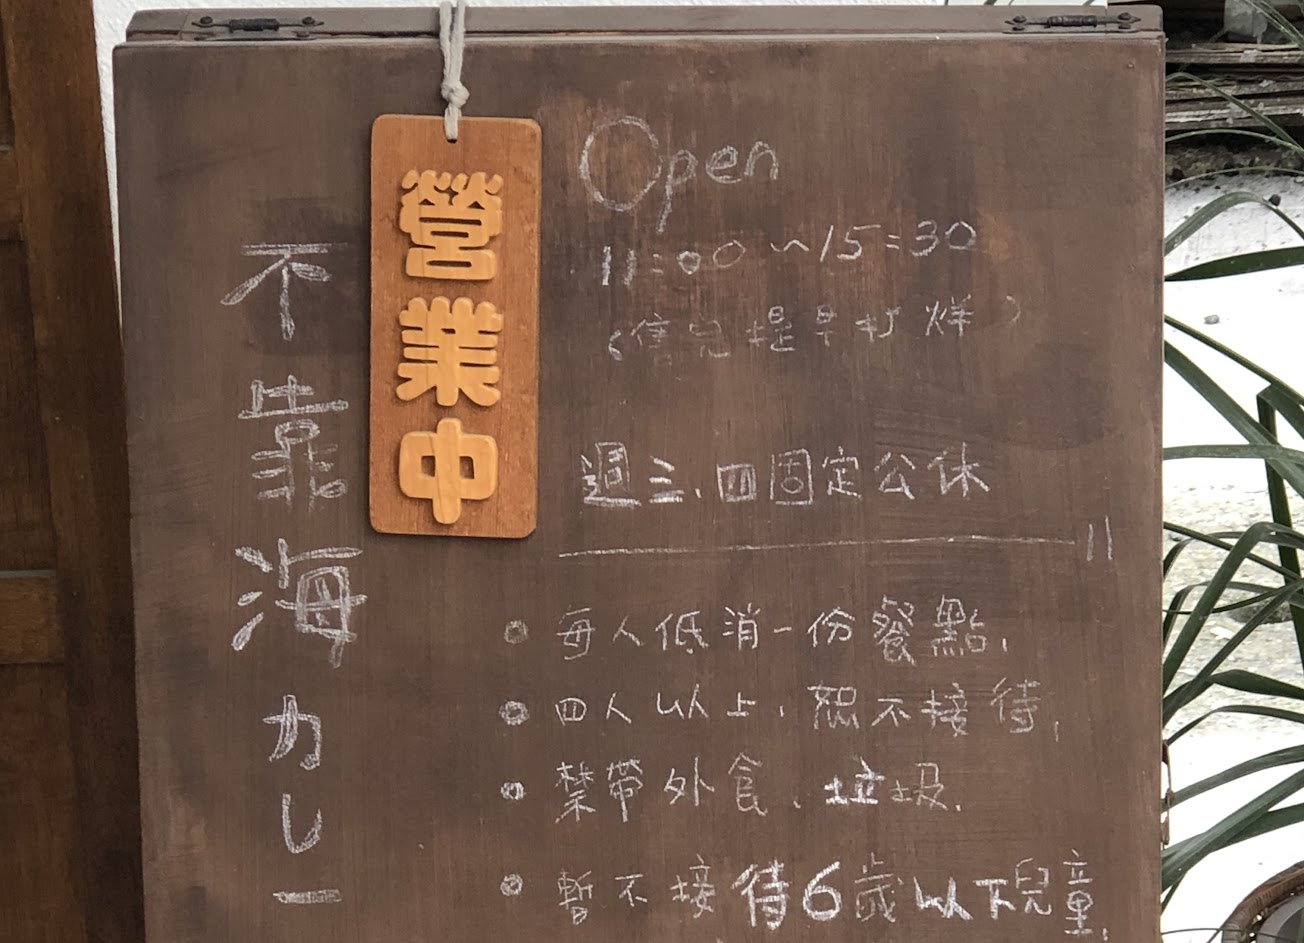 不靠海カレー
營業中
Open
11:00~15:30
(售完提早打烊)
週三、四固定公休
每人低消一份餐點.
四人以上,恕不接待.
禁帶外食、垃圾.
暫不接待6歲以下兒童.